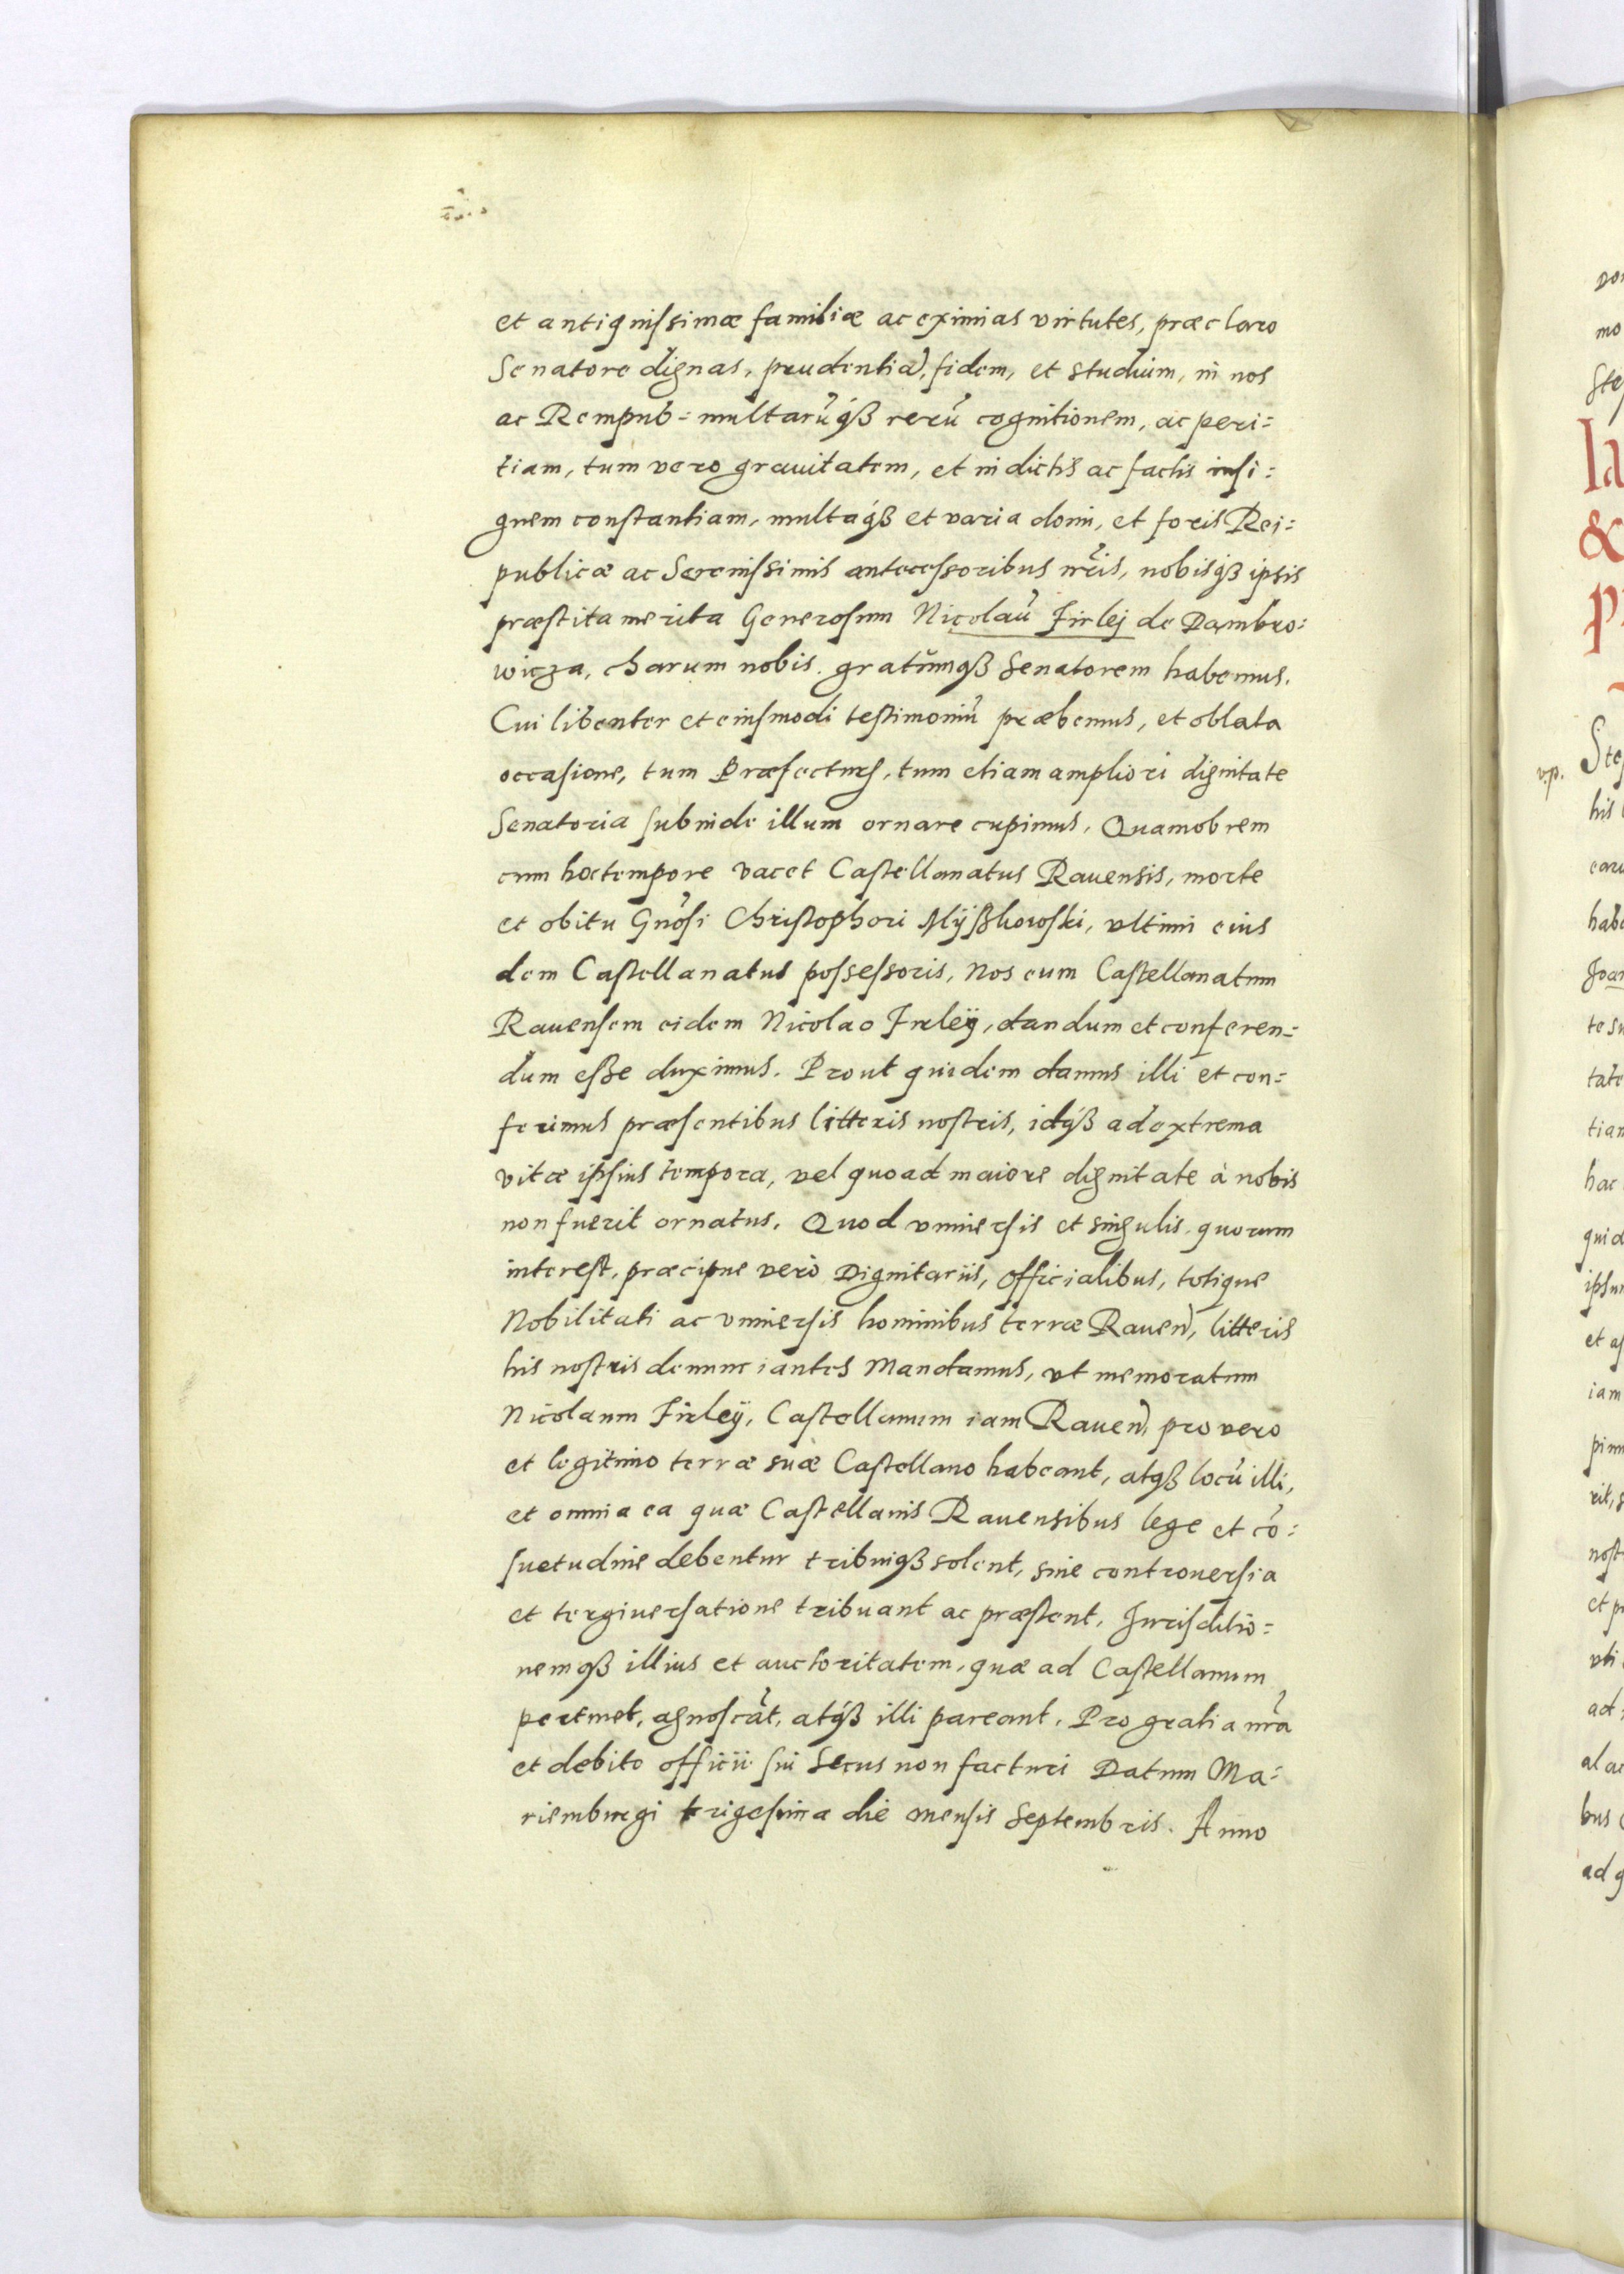 et antiquissimæ familiæ ac eximias virtutes, præclaro
Senatore dignas, prudentiã, fidem, et studium, in nos
ac Rempub= multarũ q́ꝫ rerũ cognitionem, ac peri=
tiam, tum vero grauitatem, et in dictis ac factis insi=
gnem constantiam, multaq́ꝫ et varia domi, et foris Rei=
publicæ ac Serenissimis antecessoribus nr̃is, nobisq́ꝫ ipsis
præstita merita Generosum Nicolaũ Firlej de Dąmbro=
wicza, charum nobis gratũmqꝫ Senatorem habemus.
Cui libenter et eiusmodi testimoniũ præbemus, et oblata
occasione, tum Præfecturis, tum etiam ampliori dignitate
Senatoria subinde illum ornare cupimus, Quamobrem
cum hoc tempore vacet Castellanatus Rauensis, morte
et obitu Gnõsi Christophori Mÿßkowski, vltimi eius
dem Castellanatus possessoris, Nos eum Castellanatum
Rauensem eidem Nicolao Firleÿ, dandum et conferen=
dum eße duximus. Prout quidem damus illi et con=
ferimus præsentibus litteris nostris, idq́ꝫ ad extrema
vitæ ipsius tempora, vel quoad maiore dignitate à nobis
non fuerit ornatus. Quod vniuersis et singulis quorum
interest, præcipue verò Dignitariis, officialibus, totique
Nobilitati ac vniuersis hominibus terræ Raueñ, litteris
his nostris denunciantes Mandamus, vt memoratum
Nicolaum Firleÿ, Castellanum iam Raueñ, pro vero
et legitimo terræ suæ Castellano habeant, atqꝫ locũ illi,
et omnia ea quæ Castellanis Rauensibus lege et cõ=
suetudine debentur tribuiqꝫ solent, sine controuersia
et tergiuersatione tribuant ac præstent, Jurisditio=
nemqꝫ illius et auctoritatem, quæ ad Castellanum
pertinet, agnoscãt, atq́ꝫ illi pareant, Pro gratia nr̃a
et debito officii sui Secus non facturi Datum Ma=
riemburgi trigesima die mensis Septembris. Anno